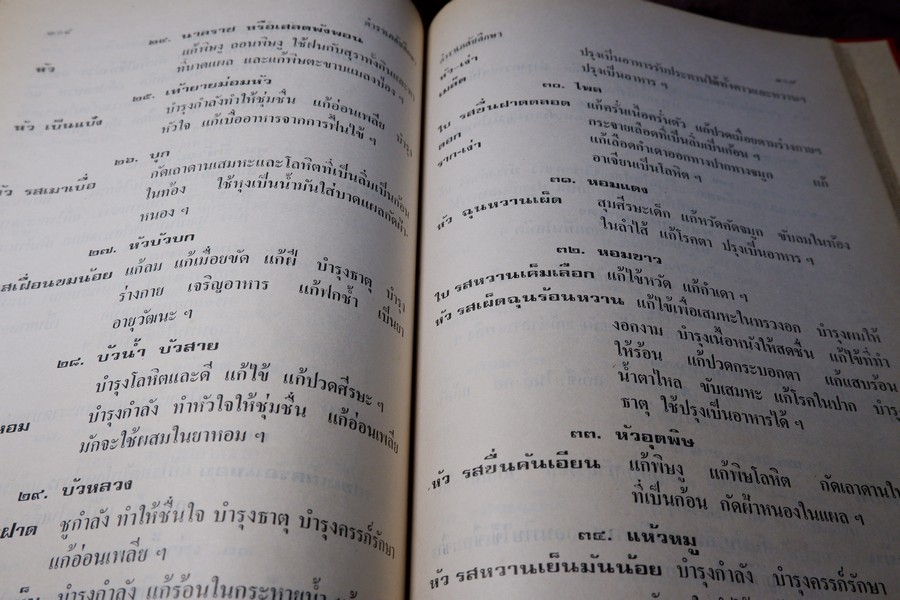 ๒๔. นาคราย หรือเสลดพังพอน
หัว แก้พิษงู ถอนพิษงู ใช้ฝนกับสุราทั้งกินและทา
ที่บาดแผล และแก้พิษตะขาบแมลงป่อง ฯ
๒๕. เท้ายายม่อมหัว
หัว เป็นแป้ง บำรุงกำลังทำให้ชุ่มชื่น แก้อ่อนเพลีย บำรุง
หัวใจ แก้เบื่ออาหารจากการฟื้นไข้ ฯ
๒๖. บุก
หัว รสเมาเบื่อ กัดเถาดานเสมหะและโลหิตที่เป็นลิ่มเป็นก้อน
ในท้อง ใช้หุงเป็นน้ำมันใส่บาดแผลกัดฝ้า
หนอง ฯ
๒๗. หัวบัวบก
รสเฝื่อนขมน้อย แก้ลม แก้เมื่อยขัด แก้ฝี บำรุงธาตุ บำรุง
ร่างกาย เจริญอาหาร แก้ฟกช้ำ เป็นยา
อายุวัฒนะ ฯ
๒๘. บัวน้ำ บัวสาย
บำรุงโลหิตและดี แก้ไข้ แก้ปวดศีรษะ ฯ
หอม บำรุงกำลัง ทำหัวใจให้ชุ่มชื่น แก้อ่อนเพลีย
มักจะใช้ผสมในยาหอม ฯ
๒๙. บัวหลวง
ฝาด ชูกำลัง ทำให้ชื่นใจ บำรุงธาตุ บำรุงครรภ์รักษา
แก้อ่อนเพลีย ฯ
บำรุงกำลัง แก้ร้อนในกระหายน้ำ
หัว-เง่า ปรุงเป็นอาหารรับประทานได้ทั้งคาวและหวาน ฯ
เมล็ด ปรุงเป็นอาหาร ฯ
๓๐. ไพล
ใบ รสขื่นฝาดตลอด แก้ครั่นเนื้อครั่นตัว แก้ปวดเมื่อยตามร่างกาย ฯ
ดอก กระจายเลือดที่เป็นลิ่มเป็นก้อน ฯ
ราก-เง่า แก้เลือดกำเดาออกทางปากทางจมูก แก้
อาเจียนเป็นโลหิต ฯ
๓๑. หอมแดง
หัว ฉุนหวานเผ็ด สุมศีรษะเด็ก แก้หวัดคัดจมูก ขับลมในท้อง
ในลำไส้ แก้โรคตา ปรุงเป็นอาหาร ฯ
๓๒. หอมขาว
ใบ รสหวานเค็มเลือก แก้ไข้หวัด แก้กำเดา ฯ
หัว รสเผ็ดฉุนร้อนหวาน แก้ไข้เพื่อเสมหะในทรวงอก บำรุงผมให้
งอกงาม บำรุงเนื้อหนังให้สดชื่น แก้ไข้ที่ทำ
ให้ร้อน แก้ปวดกระบอกตา แก้แสบร้อน
น้ำตาไหล ขับเสมหะ แก้โรคในปาก บำรุง
ธาตุ ใช้ปรุงเป็นอาหารได้ ฯ
๓๓. หัวอุตพิษ
หัว รสขื่นคันเอียน แก้พิษงู แก้พิษโลหิต กัดเถาดานใน
ที่เป็นก้อน กัดฝ้าหนองในแผล ฯ
๓๔. แห้วหมู
หัว รสหวานเย็นมันน้อย บำรุงกำลัง บำรุงครรภ์รักษา